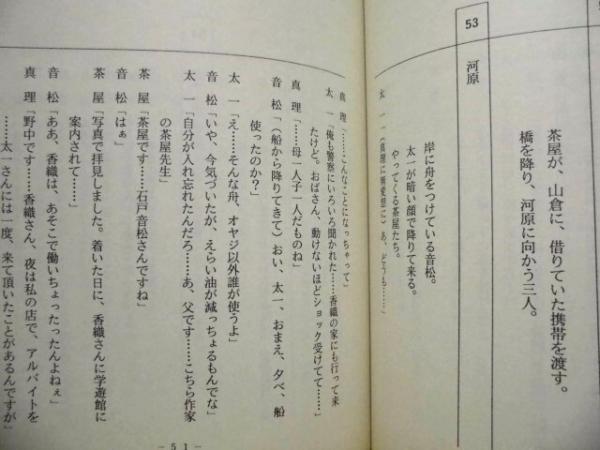 茶屋が、山倉に、借りていた携帯を渡す。
橋を降り、河原に向かう三人。
53
河原
岸に舟をつけている音松。
太一が暗い顔で降りて来る。
やってくる茶屋たち。
太 一「(真理に無愛想に)あ、どうも……」
真 理「……こんなことになっちゃって」
太 一「俺も警察にいろいろ聞かれた……香織の家にも行って来
たけど。おばさん、動けないほどショック受けてて……」
真 理「……母一人子一人だものね」
音 松「(船から降りてきて)おい、太一、おまえ、夕べ、船
使ったのか?」
太 一「え……そんな舟、オヤジ以外誰が使うよ」
音 松「いや、今気づいたが、えらい油が減っちょるもんでな」
太 一「自分が入れ忘れたんだろ……あ、父です……こちら作家
の茶屋先生」
茶 屋「茶屋です……石戸音松さんですね」
音 松「はぁ」
茶 屋「写真で拝見しました。着いた日に、香織さんに学遊館に
案内されて……」
音 松「ああ、香織は、あそこで働いちょったったんよねぇ」
真 理「野中です……香織さん、夜は私の店で、アルバイトを
……太一さんには一度、来て頂いたことがあるんですが
－51－